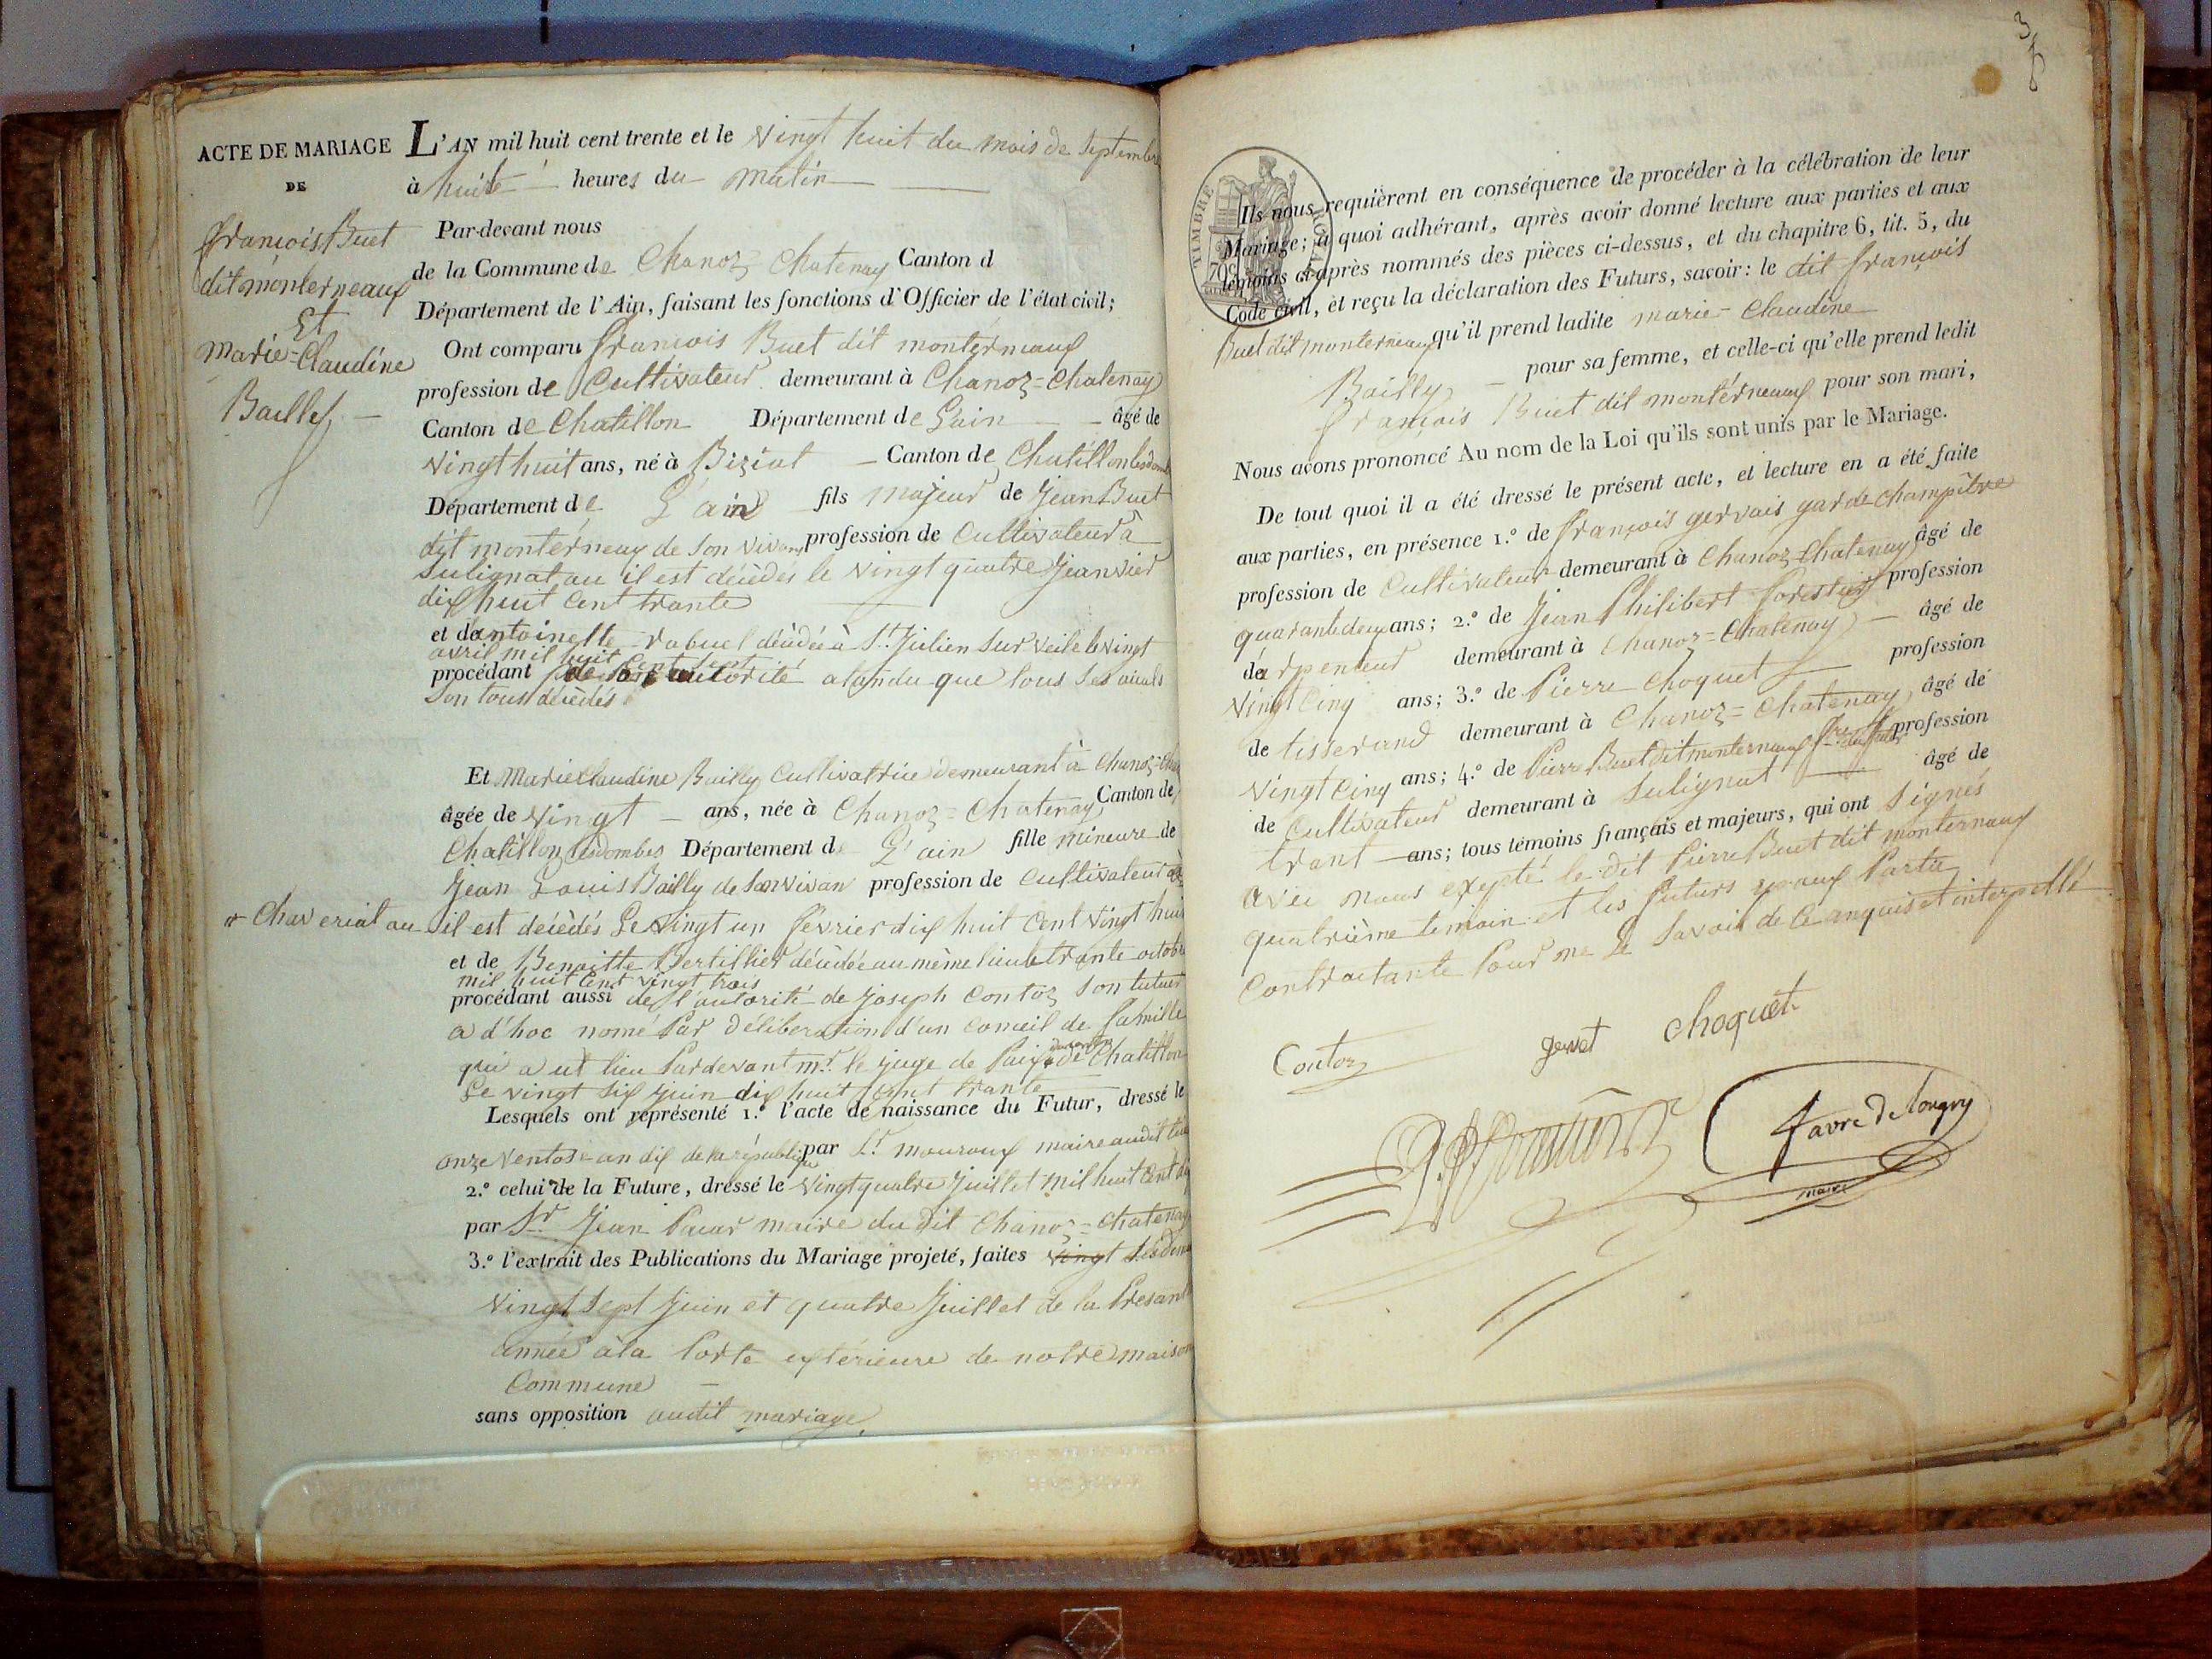 ACTE DE MARIAGE
DE
François Buet
dit monterneaux
Et
Marie=Claudine
Bailly
L'AN mil huit cent trente et le vingt huit du mois de Septembre
à huite heures du matin
Par-devant nous
de la Commune de Chanoz=Chatenay Canton d
Département de l'Ain, faisant les fonctions d'Officier de l'état civil;
Ont comparu François Buet dit monternaux
profession de Cultivateur demeurant à Chanoz=Chatenay
Canton de Chatillon Département de L'ain âgé de
vingt huit ans, né à Biziat Canton de Chatillon lesdombes
Département de L'ain fils majeur de Jean Buet
dit monterneux de son vivant profession de Cultivateur à
Sulignat au il est décédés le vingt quatre Jeanvier
dix huit Cent trante
et de antoinette rabuel décédée à St. Julien Sur veile le vingt
avril mil huit Cent Sept
procédant de son autorité atandu que tous ses aieuls
Son tous décédés
Et Marie Claudine Bailly Cultivatrice demeurant à Chanoz=Chat
âgée de vingt ans, née à Chanoz=Chatenay Canton de
Chatillon lesdombes Département de L'ain fille mineure de
Jean Louis Bailly de Son vivan profession de Cultivateur à
Chaveriat au il est décédés Le vingt un février dix huit Cent vingt huit
et de Benoitte Bertillier décédée au mème lieu le trante octobre
mil huit Cent vingt trois
procédant aussi de l'autorité de Joseph Contoz Son tuteur
a d'hoc nomé Par déliberation d'un Conseil de famille
qui a ut lieu Pardevant mr. le juge de Paix de Chatillon
Le vingt Six juin dix huit Cent trante
Lesquels ont représenté 1.º l'acte de naissance du Futur, dressé le
onze ventose an dix de la république par Sr. mouroux maire audit lieu
2.º celui de la Future, dressé le vingt quatre Juillet mil huit Cent dix
par Sr Jean Pacur maire du dit Chanoz=Chatenay
3.º l'extrait des Publications du Mariage projeté, faites vingt Les dim
vingt Sept Juin et quatre Juillet de la Presante
année à la Porte extérieure de notre maison
Commune
sans opposition audit mariage
TIMBRE ROYAL
Ils nous requièrent en conséquence de procéder à la célébration de leur
Mariage; à quoi adhérant, après avoir donné lecture aux parties et aux
témoins ci-après nommés des pièces ci-dessus, et du chapitre 6, tit. 5, du
Code civil, et reçu la déclaration des Futurs, savoir: le dit François
Buet dit monterneaux qu'il prend ladite marie=Claudine
Bailly pour sa femme, et celle-ci qu'elle prend ledit
François Buet dit monterneaux pour son mari,
Nous avons prononcé Au nom de la Loi qu'ils sont unis par le Mariage.
De tout quoi il a été dressé le présent acte, et lecture en a été faite
aux parties, en présence 1.º de François gervais garde champêtre
profession de Cultivateur demeurant à Chanoz=Chatenay âgé de
quarante deux ans; 2.º de Jean Philibert Forestier profession
de arpenteur demeurant à Chanoz=Chatenay âgé de
vingt Cinq ans; 3.º de Pierre Choquet profession
de tisserand demeurant à Chanoz=Chatenay âgé de
vingt Cinq ans; 4.º de Pierre Buet dit monternaux frère du futur profession
de Cultivateur demeurant à Sulignat âgé de
trant ans; tous témoins français et majeurs, qui ont Signés
avec nous exepté le dit Pierre Buet dit monternaux
quatrième temoin et les futurs epoux Partie
Contractante Pour ne Le Savoir de Ce anquis et interpellé
Contoz
Choquet
favre de longry
maire